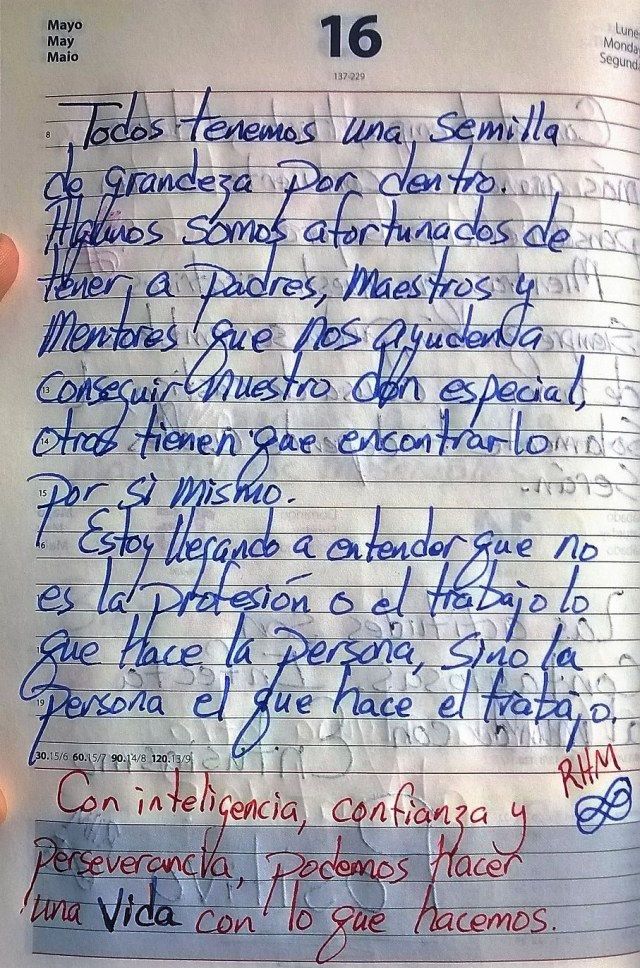 Mayo
May
Maio
16
137-229
Lune
Monda
Segund
8
Todos tenemos una semilla
de grandeza por dentro.
Algunos somos afortunados de
tener a padres, maestros y
mentores que nos ayuden a
13
conseguir nuestro don especial,
14
otros tienen que encontrarlo
15
por si mismo.
16
Estoy llegando a entender que no
es la profesión o el trabajo lo
que hace la persona, sino la
19
persona el que hace el trabajo.
30.15/6 60.15/7 90.14/8 120.13/9
RHM
Con inteligencia, confianza y
perseverancia, podemos hacer
una vida con lo que hacemos.